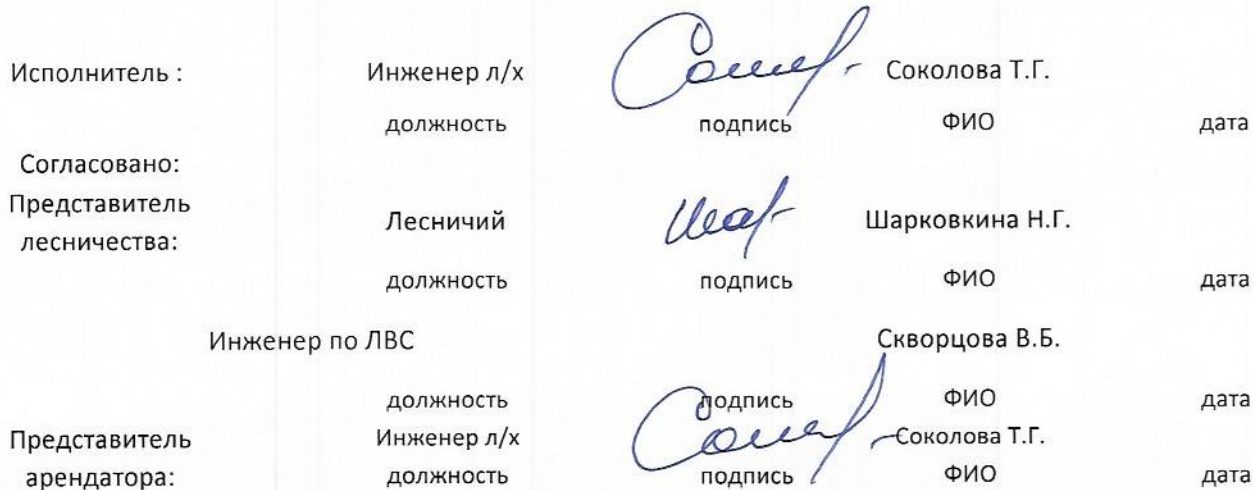 Исполнитель : Инженер л/х Соколова Т.Г.
должность подпись ФИО дата
Согласовано:
Представитель
лесничества: Лесничий Шарковкина Н.Г.
должность подпись ФИО дата
Инженер по ЛВС Скворцова В.Б.
должность подпись ФИО дата
Представитель Инженер л/х Соколова Т.Г.
арендатора: должность подпись ФИО дата